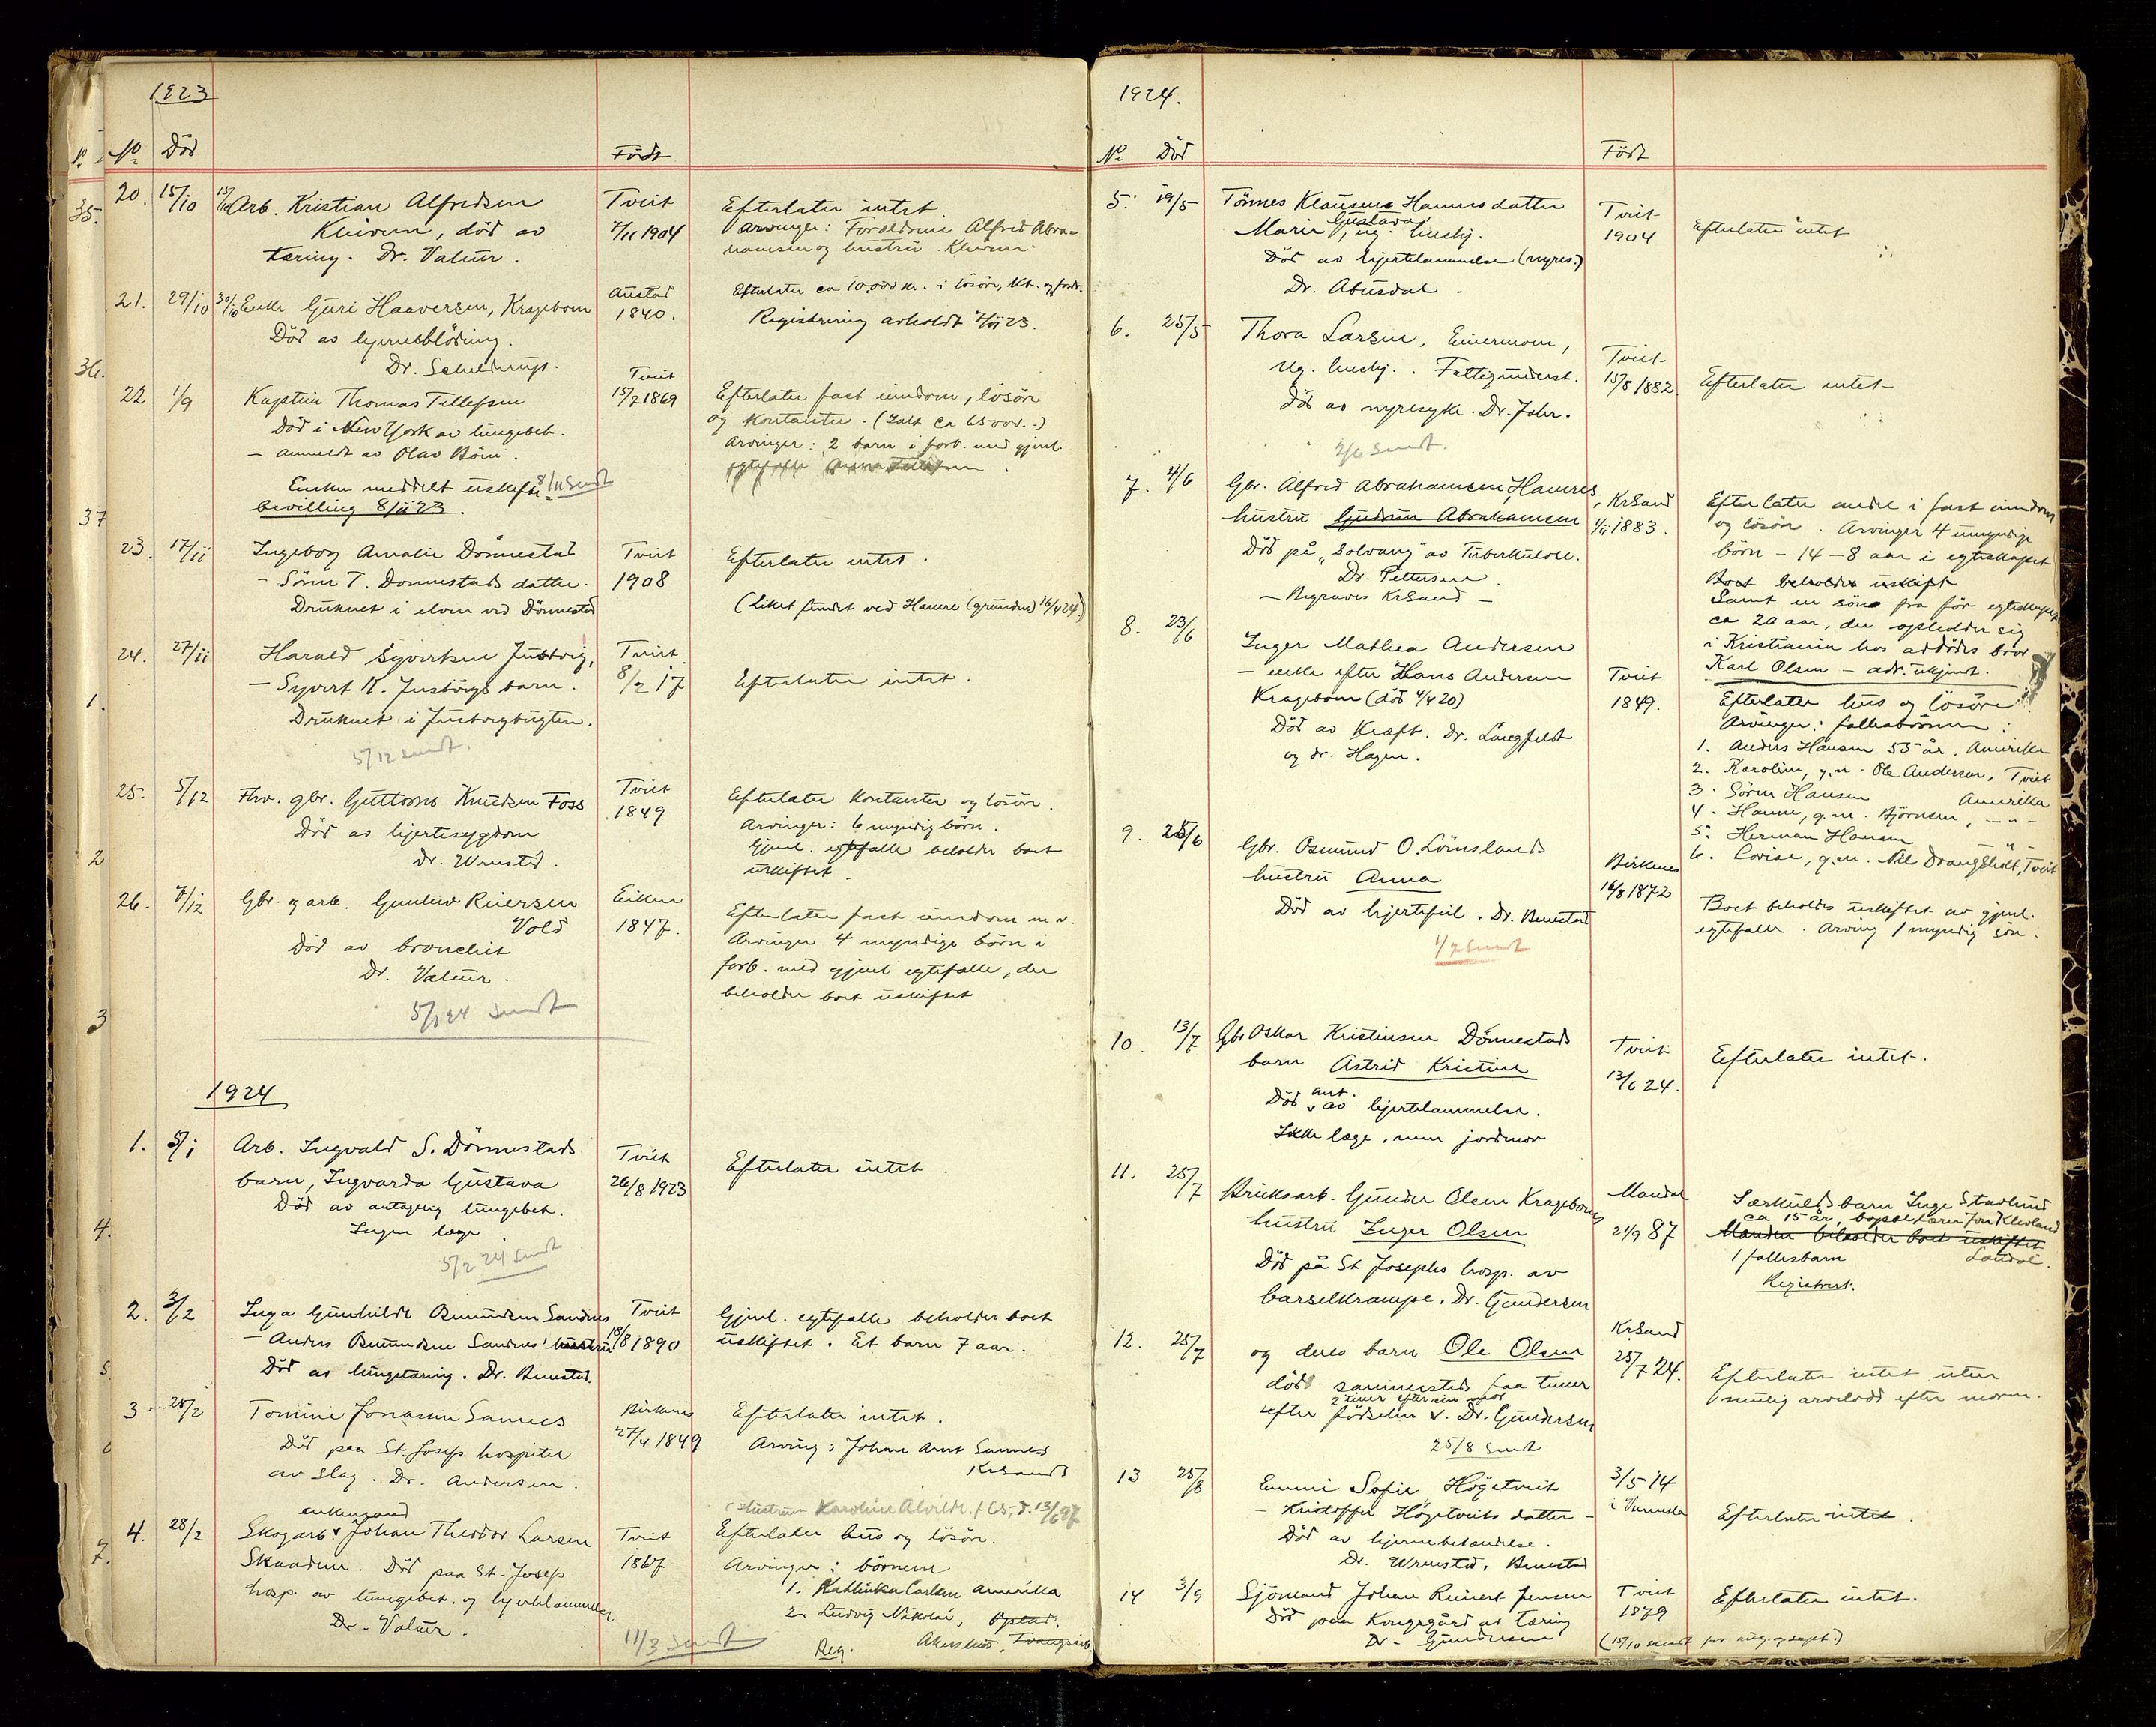 1923
No Død Født
20. 15/10 15/10 Arb. Kristian Alfredsen Tveit Efterlater intet.
Kleven, død av 7/11 1904 Arvinger: Forældrene Alfred Abra-
tæring. Dr. Valeur. hamsen og hustru Kleven
21. 29/10 30/10 Enke Guri Haaversen, Kragebom Austad 1840. Efterlater ca 10.000 kr. i løsøre, kt. og fordr.
Død av hjerneblødning. Registrering avholdt 7/11 23.
Dr. Scheldrup.
22 1/9 Kaptein Thomas Tellefsen Tveit 15/7 1869 Efterlater fast eiendom, løsøre
Død i New York av lungebet. og kontanter. (Ialt ca 65000.-)
- anmeldt av Olav Bøen. Arvinger: 2 barn i forb. med gjenl.
egtefælle Anna Tellefsen.
Enken meddelt uskifte- 8/11 Sendt
bevilling 8/11 23.
23. 17/11 Ingeborg Amalie Dønnestad Tveit Efterlater intet.
- Søren T. Dønnestads datter. 1908
Druknet i elven ved Dønnestad (Liket fundet ved Hamre (grunden) 16/4 24)
24. 27/11 Harald Syvertsen Justvig, Tveit
- Syvert K. Justvigs barn. 8/2 17 Efterlater intet.
Druknet i Justvigbugten.
5/12 sendt.
25. 5/12 Fhv. gbr. Guttorm Knudsen Foss Tveit Efterlater kontanter og løsøre.
Død av hjertesygdom 1849 Arvinger: 6 myndig børn.
Dr. Wrensted. Gjenl. egtefælle beholder boet
uskiftet.
26. 7/12 Gbr. og arb. Gunleiv Reiersen Eiken Efterlater fast eiendom m.v.
Vold 1847. Arvinger 4 myndige børn i
Død av bronchit forb. med gjenl. egtefælle, der
Dr. Valeur. beholder boet uskiftet
5/1 24 sendt
1924
1. 5/1 Arb. Ingvald S. Dønnestads Tveit
barn, Ingvarda Gustava 26/8 1923 Efterlater intet.
Død av antagelig lungebet.
Ingen læge.
5/2 24 sendt
2. 3/2 Inga Gunhilde Osmundsen Sandnes Tveit Gjenl. egtefælle beholder boet
- Anders Osmundsen Sandnes' hustru 18/8 1890 uskiftet. Et barn 7 aar.
Død av lungetæring. Dr. Benestad.
3. 28/2 Tomine Jonassen Samees Birkenes Efterlater intet.
Død paa St. Josep hospital 27/4 1849 Arving: Johan Arnt Samees
av slag. Dr. Andersen. KrSand
enkemand (Hustrun Karoline Alvilde. f. 65, d. 13/6 97
4. 28/2 Skogarb. Johan Theodor Larsen Tveit Efterlater hus og løsøre.
Skaadene. Død paa St. Josep 1867 Arvinger: børnene
hosp. av lungebet. og hjertelammelse 1. Kathinka Carlsen Amerika
Dr. Valeur. 2. Ludvig Nikolai, Opland.
11/3 sendt Reg. Akershus.
35.
36.
37
1.
2
3
4.
5
6
7.
1924.
No Død Født
5. 19/5 Tønnes Klausens Hamres datter Tveit
Marie Gustava, ug. husbj. 1904 Efterlater intet
Død av hjertelammelse (nyres.)
Dr. Abusdal.
6. 25/5 Thora Larsen, Eivermoen, Tveit
Ug. husbj. Fattigunderst. 15/8 1882 Efterlater intet
Død av nyresyke. Dr. Johr.
2/6 sendt.
7. 4/6 Gbr. Alfred Abrahamsen Hamres, KrSand Efterlater andel i fast eiendom
hustru Gudrun Abrahamsen 1/11 1883. og løsøre. Arvinger 4 umyndige
Død på "Solvang" av Tuberkulose. børn - 14-8 aar i egteskapet
Dr. Pettersen. Boet beholdes uskiftet
- Begraves KrSand - Samt en søn fra før egteskapet
ca 20 aar, der opholder sig
i Kristiania hos avdødes bror
Karl Olsen - adr. ukjendt.
8. 23/6 Inger Mathea Andersen
- enke efter Hans Andersen Tveit
Kragebom (død 4/4 20) 1849. Efterlater hus og løsøre.
Død av Kræft. Dr. Langfeldt Arvinger: fællesbørnene:
og dr. Hagen. 1. Anders Hansen 53 år. Amerika
2. Karoline, g.m. Ole Andersen, Tveit
3. Søren Hansen Amerika
4. Hanne, g.m. Bjørnsen, - " -
5. Herman Hansen - " -
6. Lovise, g.m. Nil Drangsholt, Tveit
9. 25/6 Gbr. Osmund O. Lønslands Birkenes
hustru Anna 16/8 1872 Boet beholdes uskiftet av gjenl.
Død av hjertefeil. Dr. Benestad egtefælle. Arving 1 myndig søn.
1/7 sendt
10. 13/7 Gbr Oskar Kristensen Dønnestads Tveit
barn Astrid Kristine 13/6 24. Efterlater intet.
Død ant. av hjertelammelse.
Ikke læge, men jordmor
11. 25/7 Bruksarb. Gunder Olsen Kragebom Mandal Særkuldsbarn Inge Studlind
hustru Inger Olsen 21/9 87 ca 15 år,
Død på St Josephs hosp. av Manden beholder boet uskiftet
barselkrampe. Dr. Gundersen 1 fællesbarn
Registrert.
12. 25/7 og deres barn Ole Olsen KrSand 25/7 24. Efterlater intet uten
død sammesteds faa timer mulig arvelodd efter moren.
2 timer efter sin mor
efter fødselen. Dr. Gundersen
25/8 sendt
13 25/8 Emmi Sofie Høgetveit 3/5 14
- Kristoffer Høgetveits datter - i Vennesla Efterlater intet.
Død av hjernebetændelse.
Dr. Wrensted, Benestad
14 3/9 Sjømand Johan Reinert Jensen Tveit Efterlater intet.
Død paa Kongsgård av tæring 1879
Dr. Gundersen (15/10 sendt for aug. og sept.)